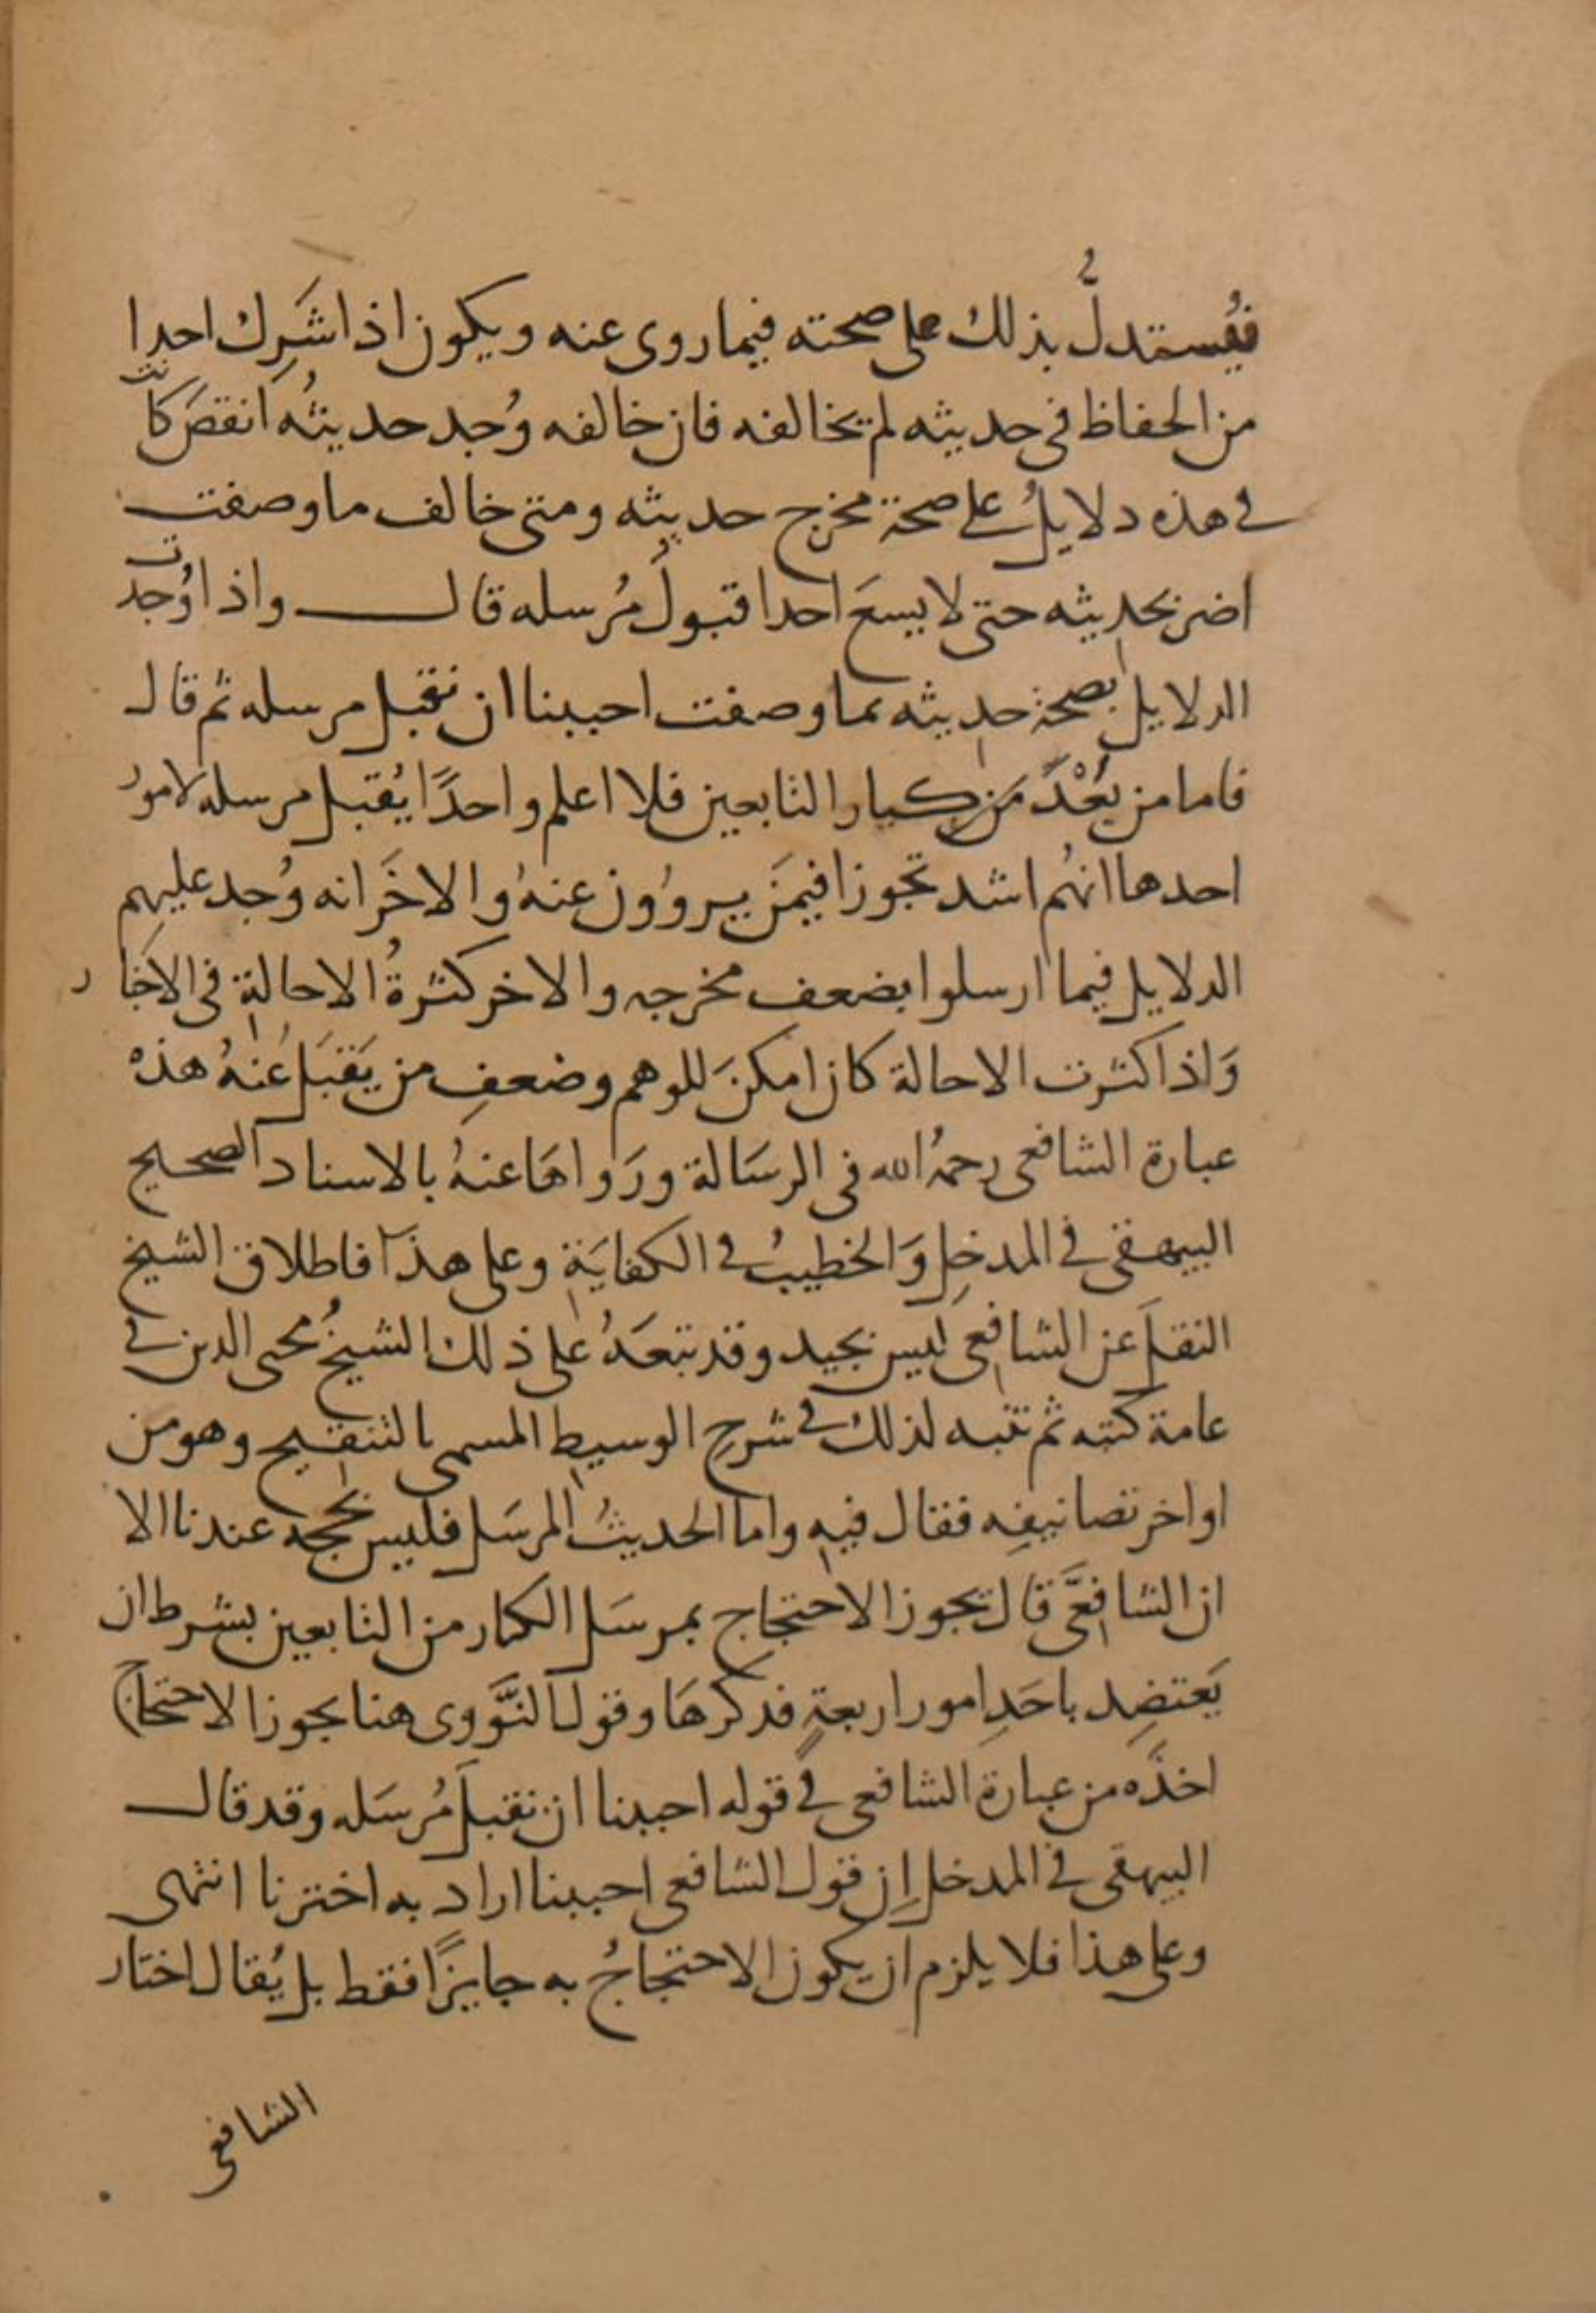 فيُستدلُّ بذلك على صحته فيما روى عنه ويكون اذا شَرِك احدا
من الحفاظ في حديثه لم يخالفه فان خالفه وُجد حديثُه انقصَ كانت
في هذه دلايلُ على صحة مخرج حديثه ومتى خالف ما وصفت
اضر بحديثه حتى لا يسعَ احدا قبولُ مُرسله قال واذا وُجدت
الدلايل بصحة حديثه بما وصفت احببنا ان نقبل مرسله ثم قال
فاما من بعْدَ من كبار التابعين فلا اعلم واحدًا يُقبل مرسله لامورٍ
احدها انهُم اشد تجوزا فيمَن يروُون عنهُ والاخَر انه وُجد عليهم
الدلايل فيما ارسلوا بضعف مخرجه والاخر كثرةُ الاحالة في الاخبار
وَاذا كثرت الاحالة كان امكنَ للوهم وضعفِ من يَقبَل عَنهُ هذه
عبارة الشافعى رحمهُ الله في الرسَالة ورَواهَا عنهُ بالاسناد الصحيح
البيهقى في المدخل وَالخطيبُ في الكفايَة وعلى هذَا فاطلاق الشيخ
النقلَ عن الشافعى ليس بجيد وقد تبعَهُ على ذلك الشيخُ محيى الدين في
عامة كتبه ثم تنبه لذلك في شرحِ الوسيط المسمى بالتنقيح وهو من
اواخر تصانيفِه فقال فيه واما الحديثُ المرسَل فليس بحجه عندنا الا
ان الشافعَّى قال يجوز الاحتجاج بمرسَل الكبار من التابعين بشرط ان
يَعتضِد باحَدِ امور اربعةٍ فذكرهَا وقول النَّووى هنا يجوز الاحتجاج
اخذَه من عبارة الشافعى في قوله احببنا ان نقبلَ مُرسَله وقد قال
البيهقى في المدخل اِن قول الشافعى احببنا اراد به اخترنا انتهى
وعلى هذا فلا يلزم ان يكون الاحتجاجُ به جايزًا فقط بل يُقال اختار
الشافعى